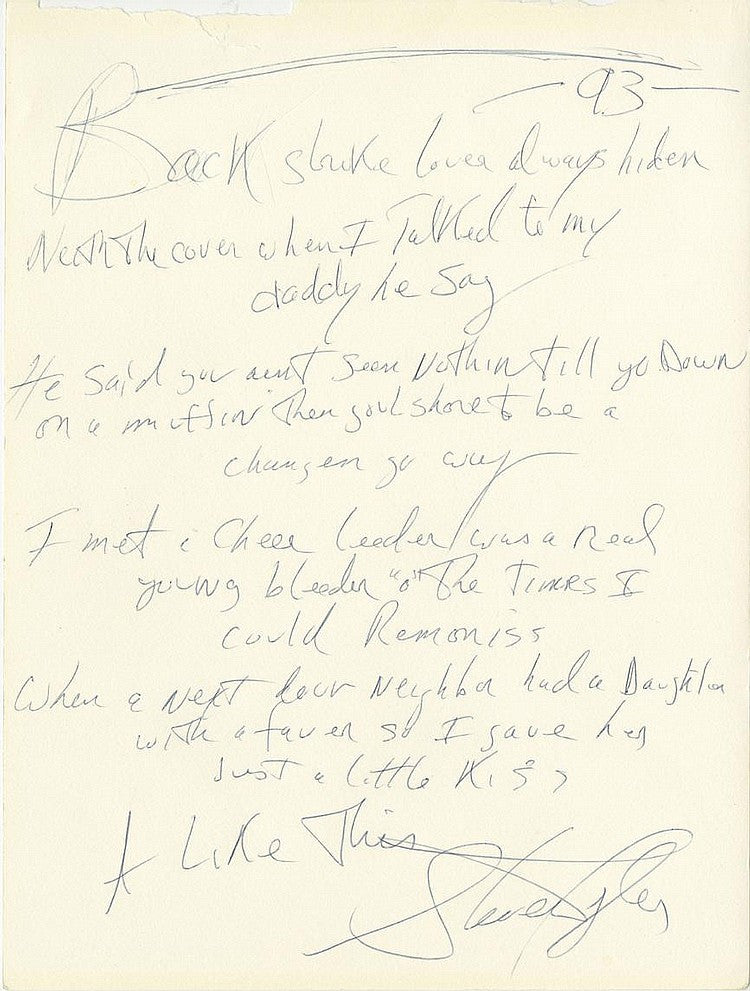 — 93 —
Back stroke lover always hiden
Neath the cover when I Talked to my
daddy he say
He said you aint seen Nothin till yo Down
on a muffin Then youl shore to be a
changen yo way
I met a Cheer leeder was a real
young bleeder "o" The Times I
could Remoniss
When a Next door Neighbor had a Daughter
with a faver so I gave her
just a little Kiss
A Like This
Steven Tyler